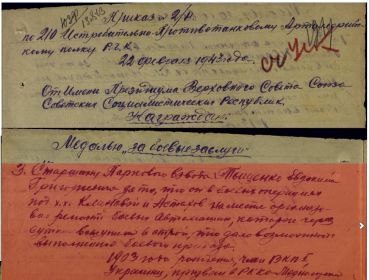 Приказ № 2/Н
по 210 Истребительно-Противотанковому Артиллерий-
скому полку Р.Г.К.
22 февраля 1943 года.
От Имени Президиума Верховного Совета Союза
Советских Социалистических Республик.
Награждаю:
Медалью "За боевые заслуги"
3. Старшину Паркового взвода
за то, что он в боевых операциях
под х.х. и Астахов на месте организо-
вал ремонт боевых Автомашин, которые через
сутки вступили в строй, что дало возможность
выполнению боевого приказа.
1903 года рождения, член ВКП/б
Украинец, призван в РККА